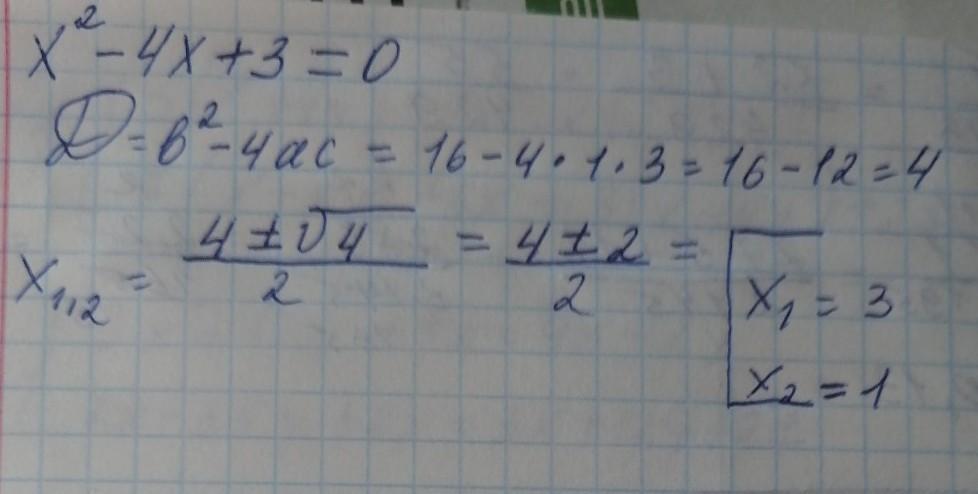 x² - 4x + 3 = 0
D = b² - 4ac = 16 - 4 · 1 · 3 = 16 - 12 = 4
x₁,₂ = (4 ± √4)/2 = (4 ± 2)/2 = [x₁ = 3
x₂ = 1